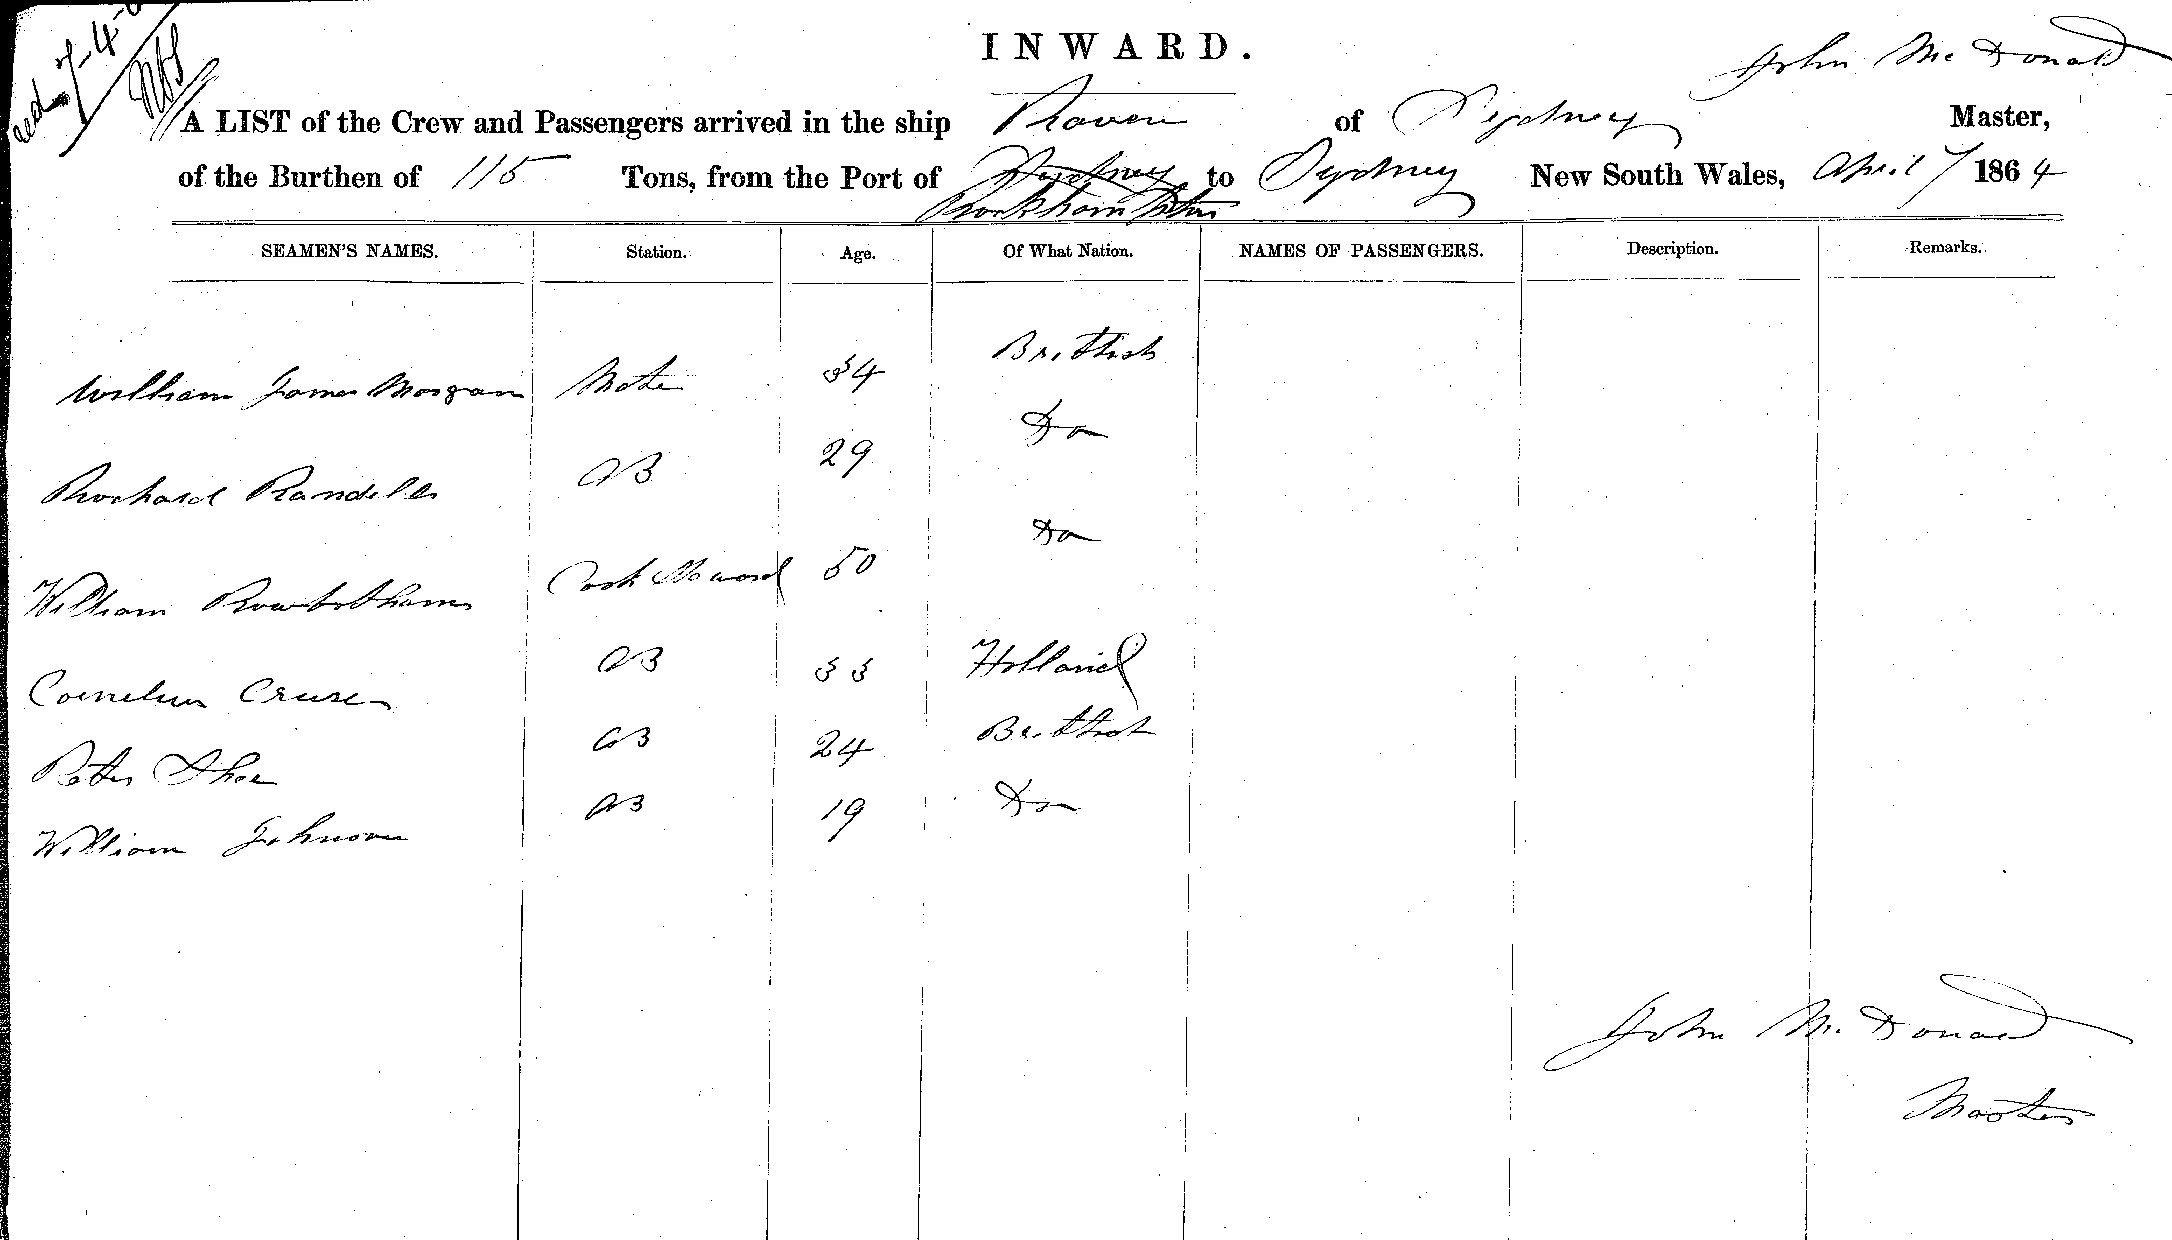 7-4-
INWARD.
John McDonald
A LIST of the Crew and Passengers arrived in the ship Raven of Sydney Master,
of the Burthen of 115 Tons, from the Port of Sydney to Sydney New South Wales, April 7 1864
Rockhampton
SEAMEN'S NAMES. Station. Age. Of What Nation. NAMES OF PASSENGERS. Description. Remarks.
William James Morgan Mate 34 Brittish
Richard Randells AB 29 Do
William Rowbotham Cook Steward 50 Do
Cornelius Cruse AB 33 Holland
Peter AB 24 Brittish
William Johnson AB 19 Do
John McDonald
Master